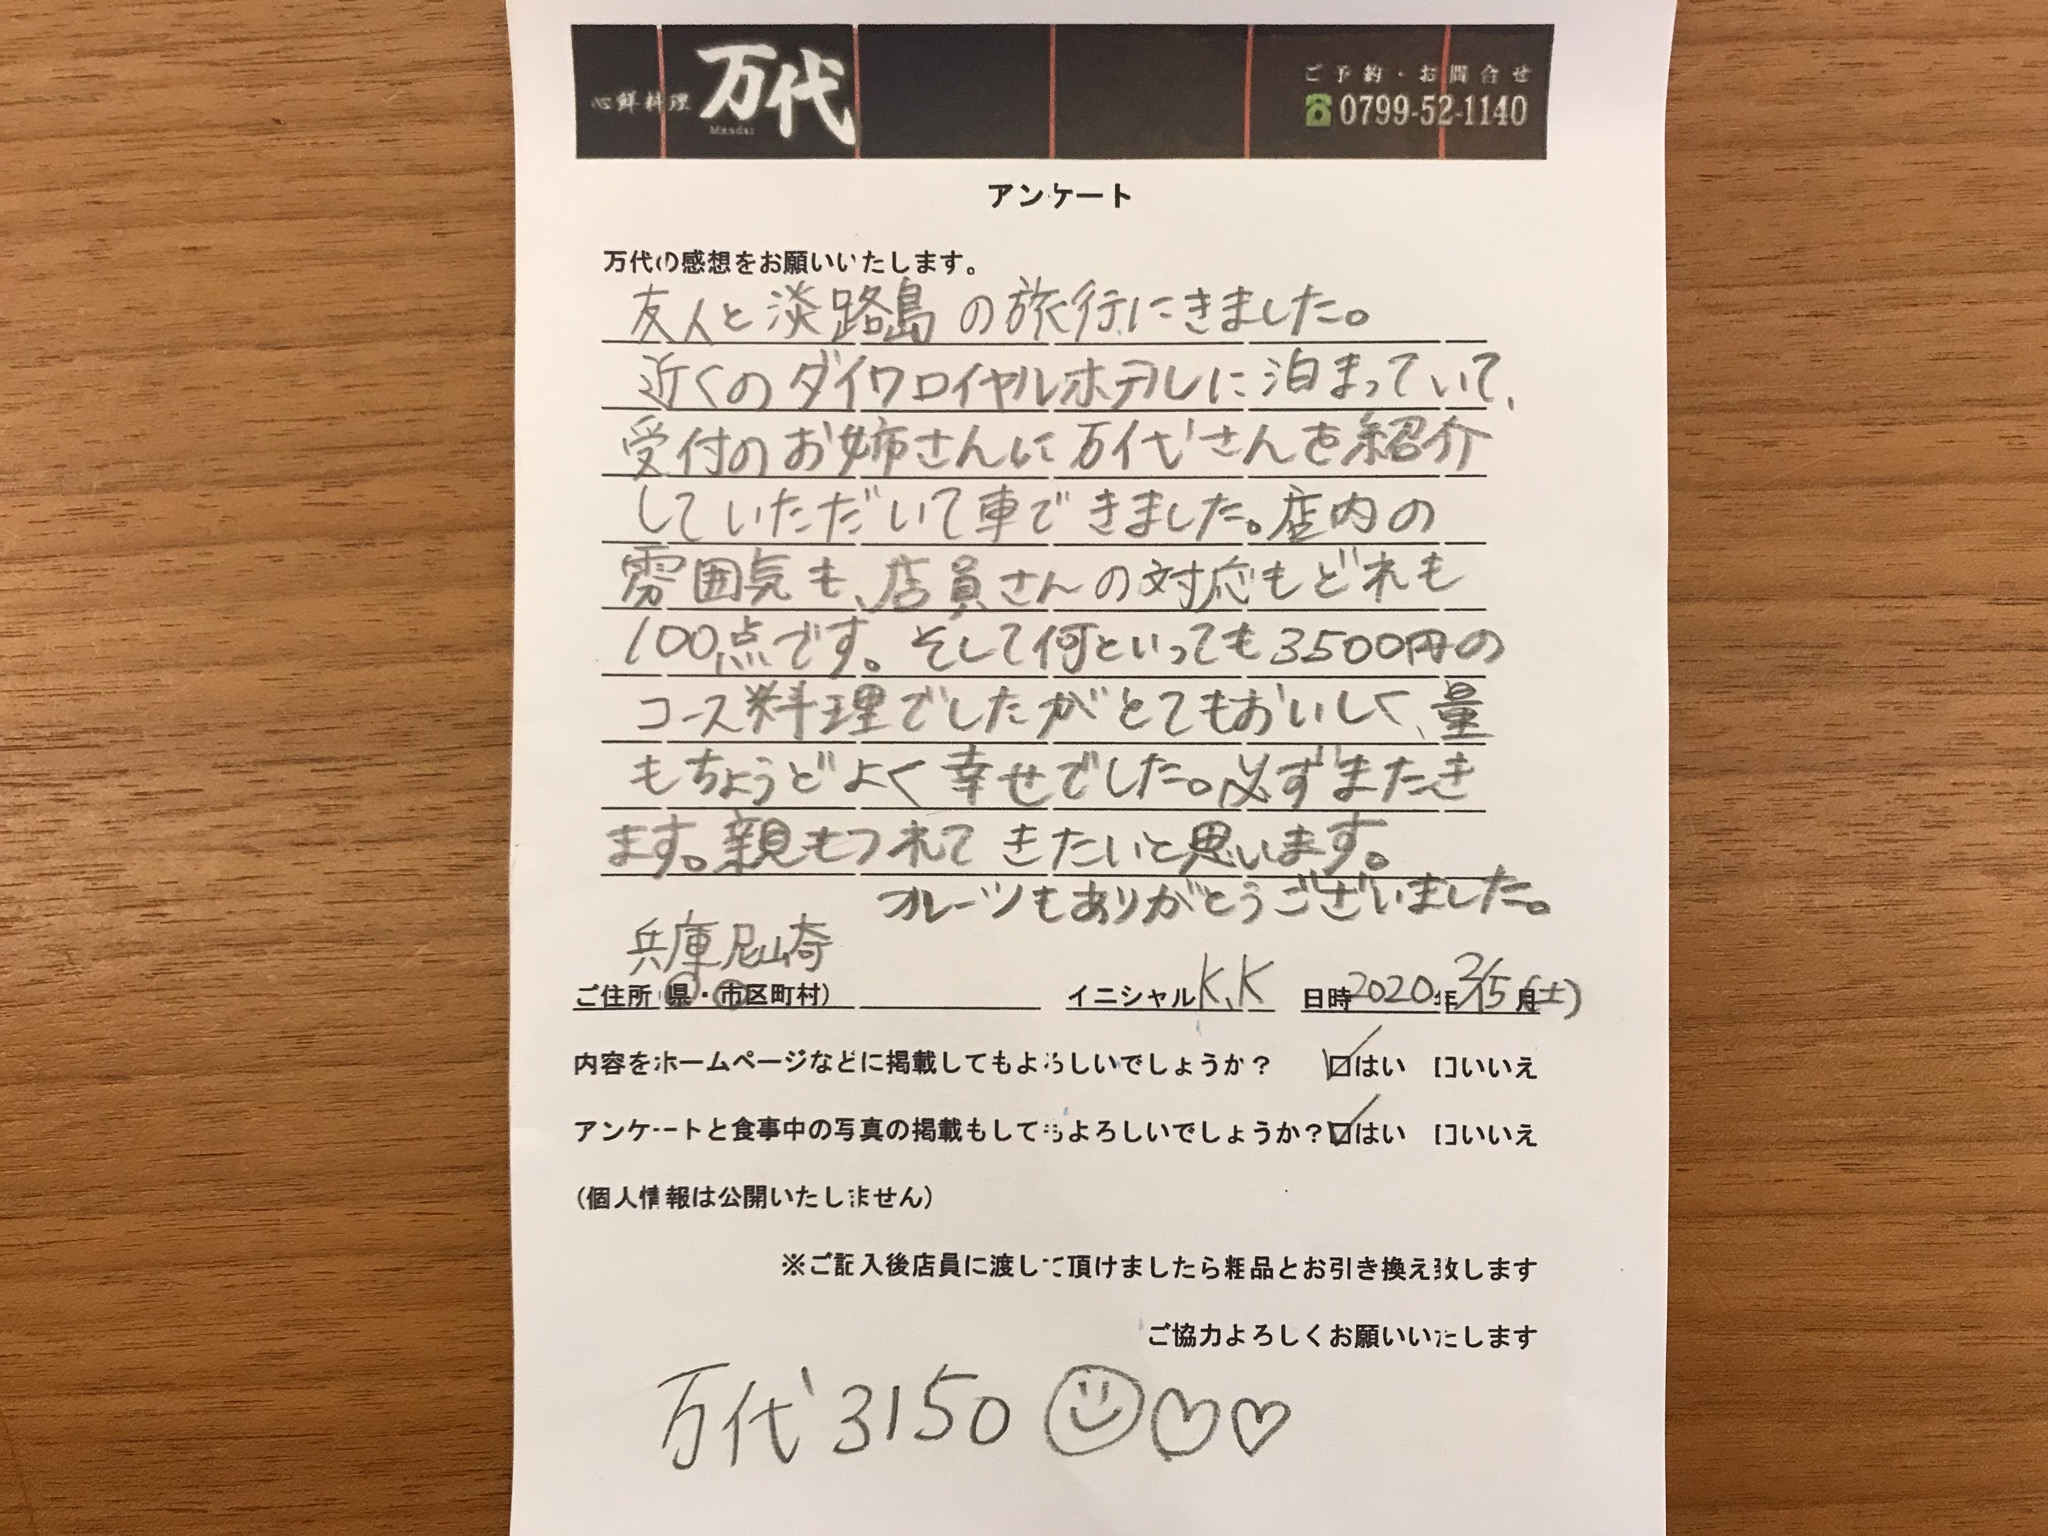 心鮮料理 万代
Mandai
ご予約・お問合せ
0799-52-1140
アンケート
万代の感想をお願いいたします。
友人と淡路島の旅行にきました。
近くのダイワロイヤルホテルに泊まっていて、
受付のお姉さんに万代さんを紹介
していただいて車できました。店内の
雰囲気も、店員さんの対応もどれも
100点です。そして何といっても3500円の
コース料理でしたがとてもおいしく、量
もちょうどよく幸せでした。必ずまたき
ます。親もつれてきたいと思います。
フルーツもありがとうございました。
兵庫尼崎
ご住所 県・市区町村) イニシャル K.K 日時 2020年 2/15月(土)
内容をホームページなどに掲載してもよろしいでしょうか? ☑はい □いいえ
アンケートと食事中の写真の掲載もしてもよろしいでしょうか?☑はい □いいえ
(個人情報は公開いたしません)
※ご記入後店員に渡して頂けましたら粗品とお引き換え致します
ご協力よろしくお願いいたします
万代 3150